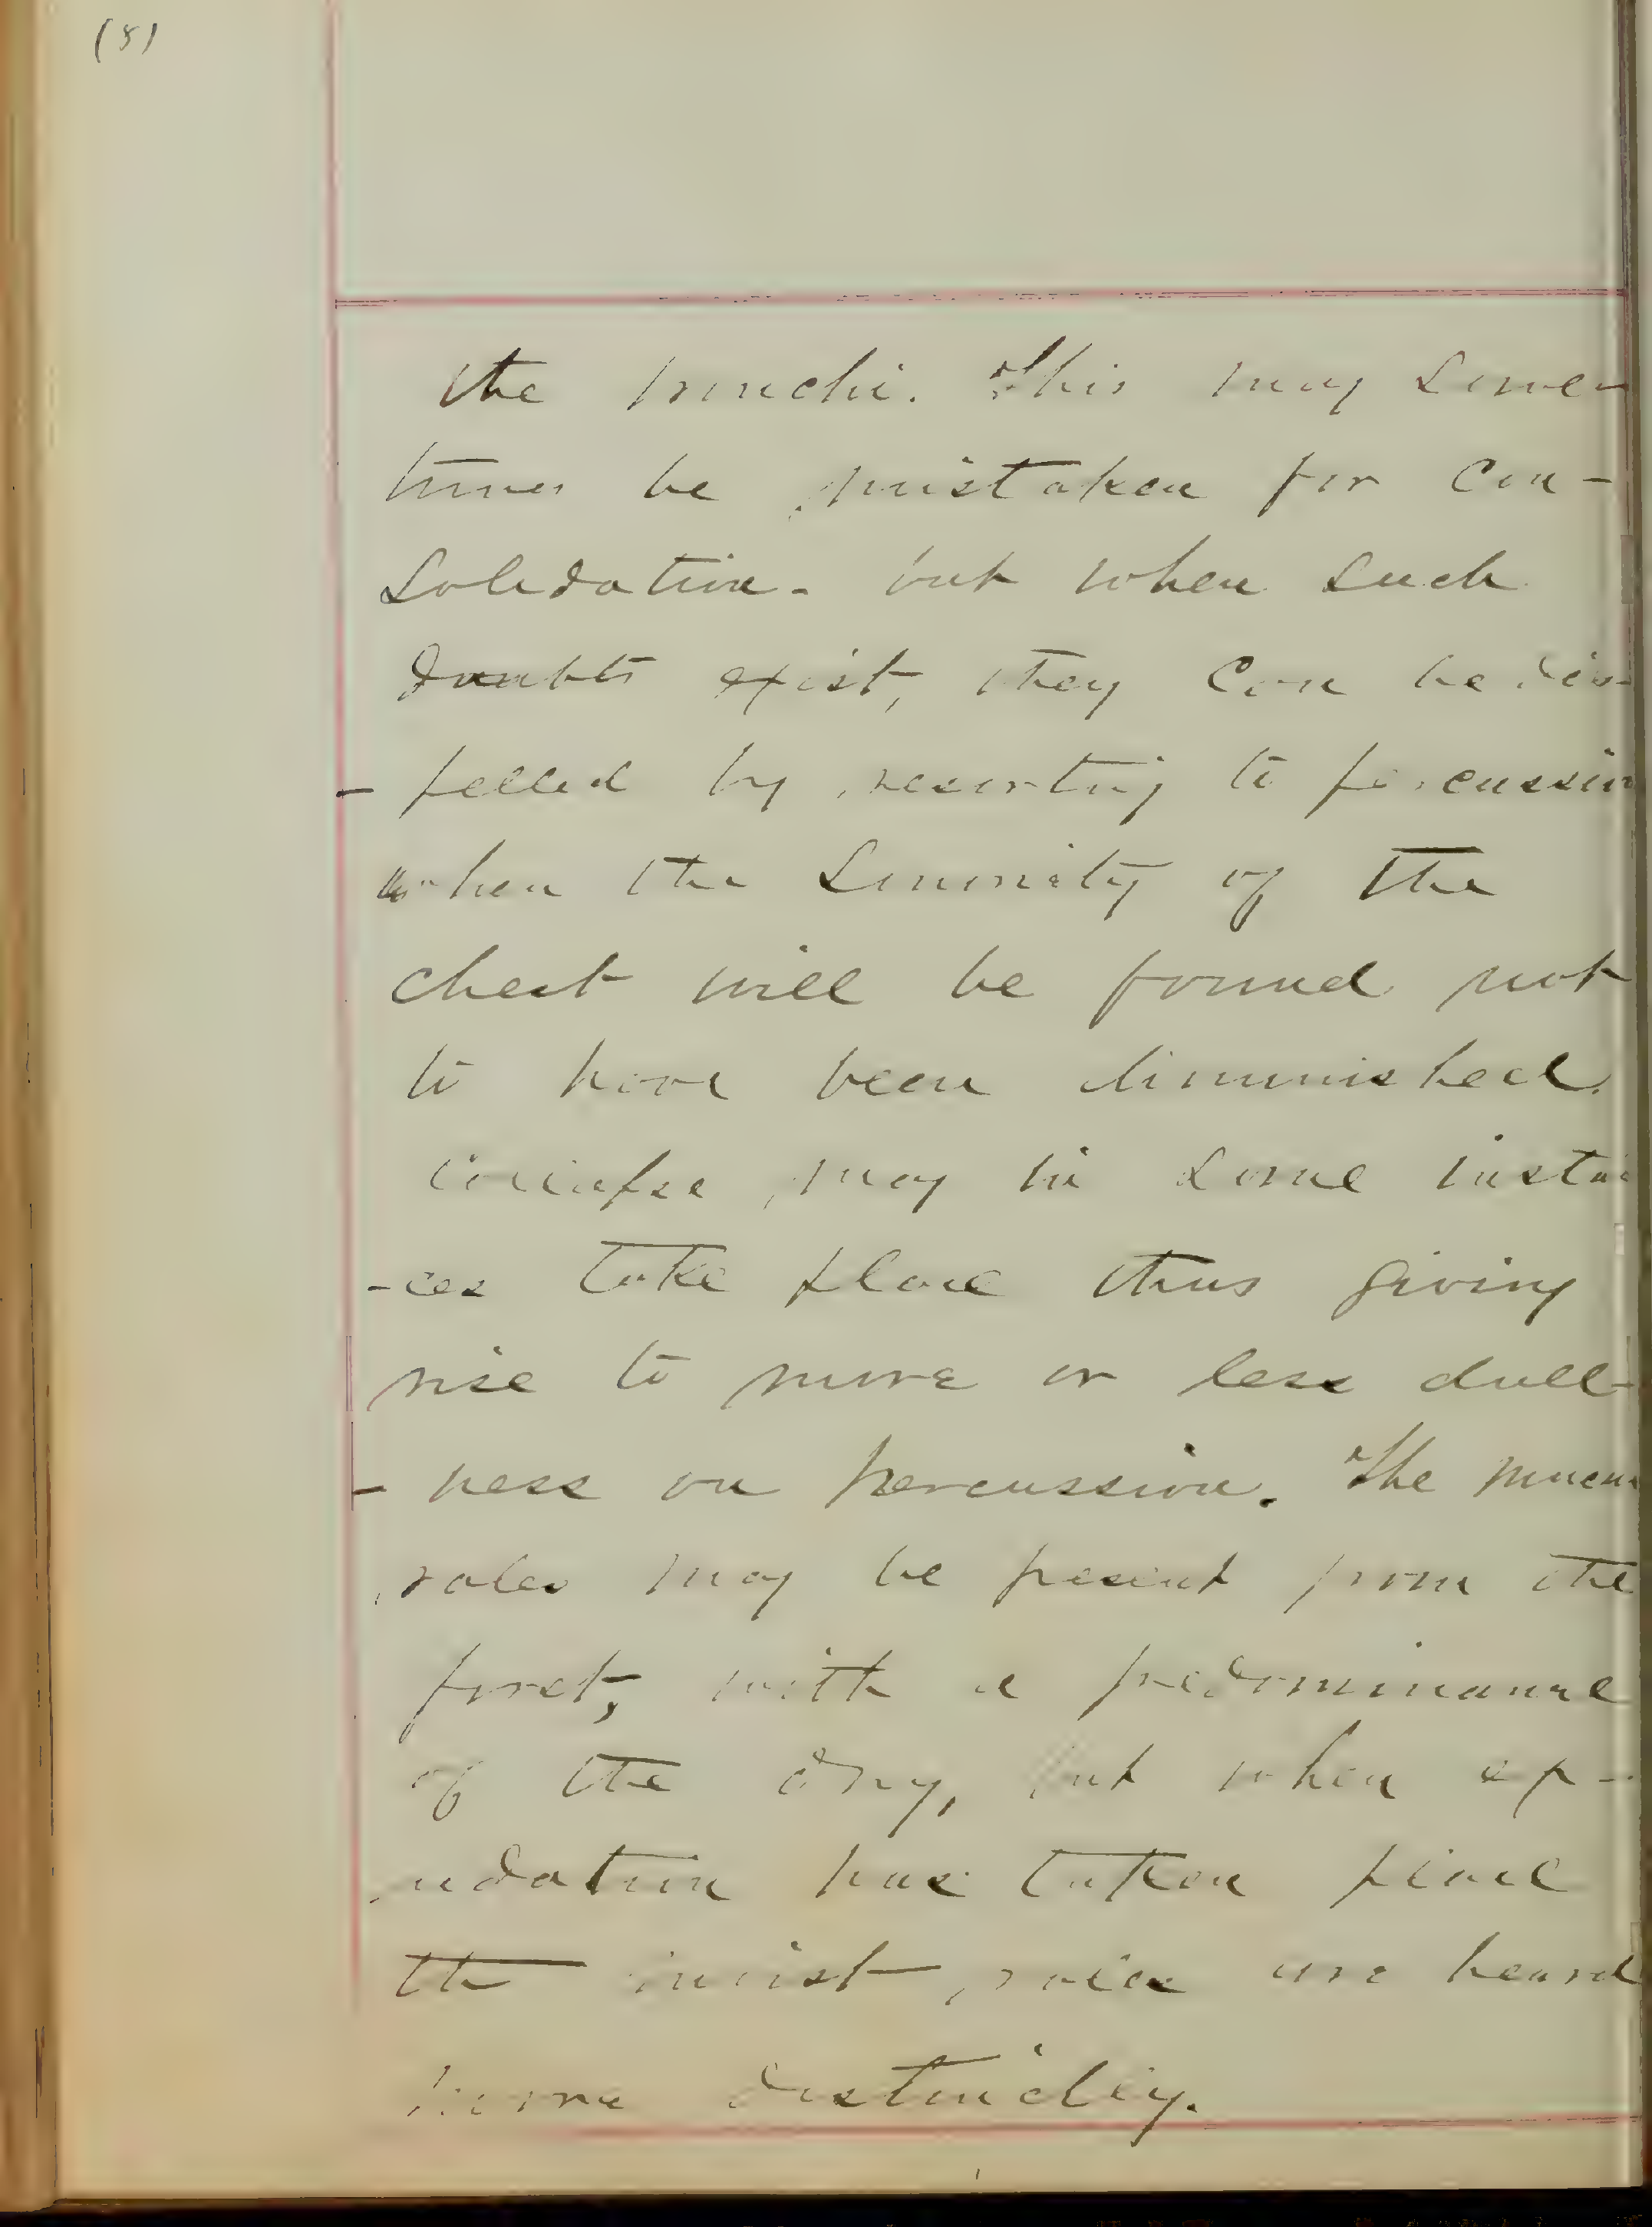 (8)
the bronchi. This may some-
times be mistaken for Con-
Solidation. but when such
doubts exist, they can be dis-
- pelled by resorting to percussion
when the Sonority of the
chest will be found not
to have been diminished.
Collapse may in some instan
-ces take place thus giving
rise to more or less dull-
- ness on percussion. The mucous
rales may be present from the
first, with a predominance
of the dry, but when ex-
udation has taken place
the moist rales are heard
more distinctly.